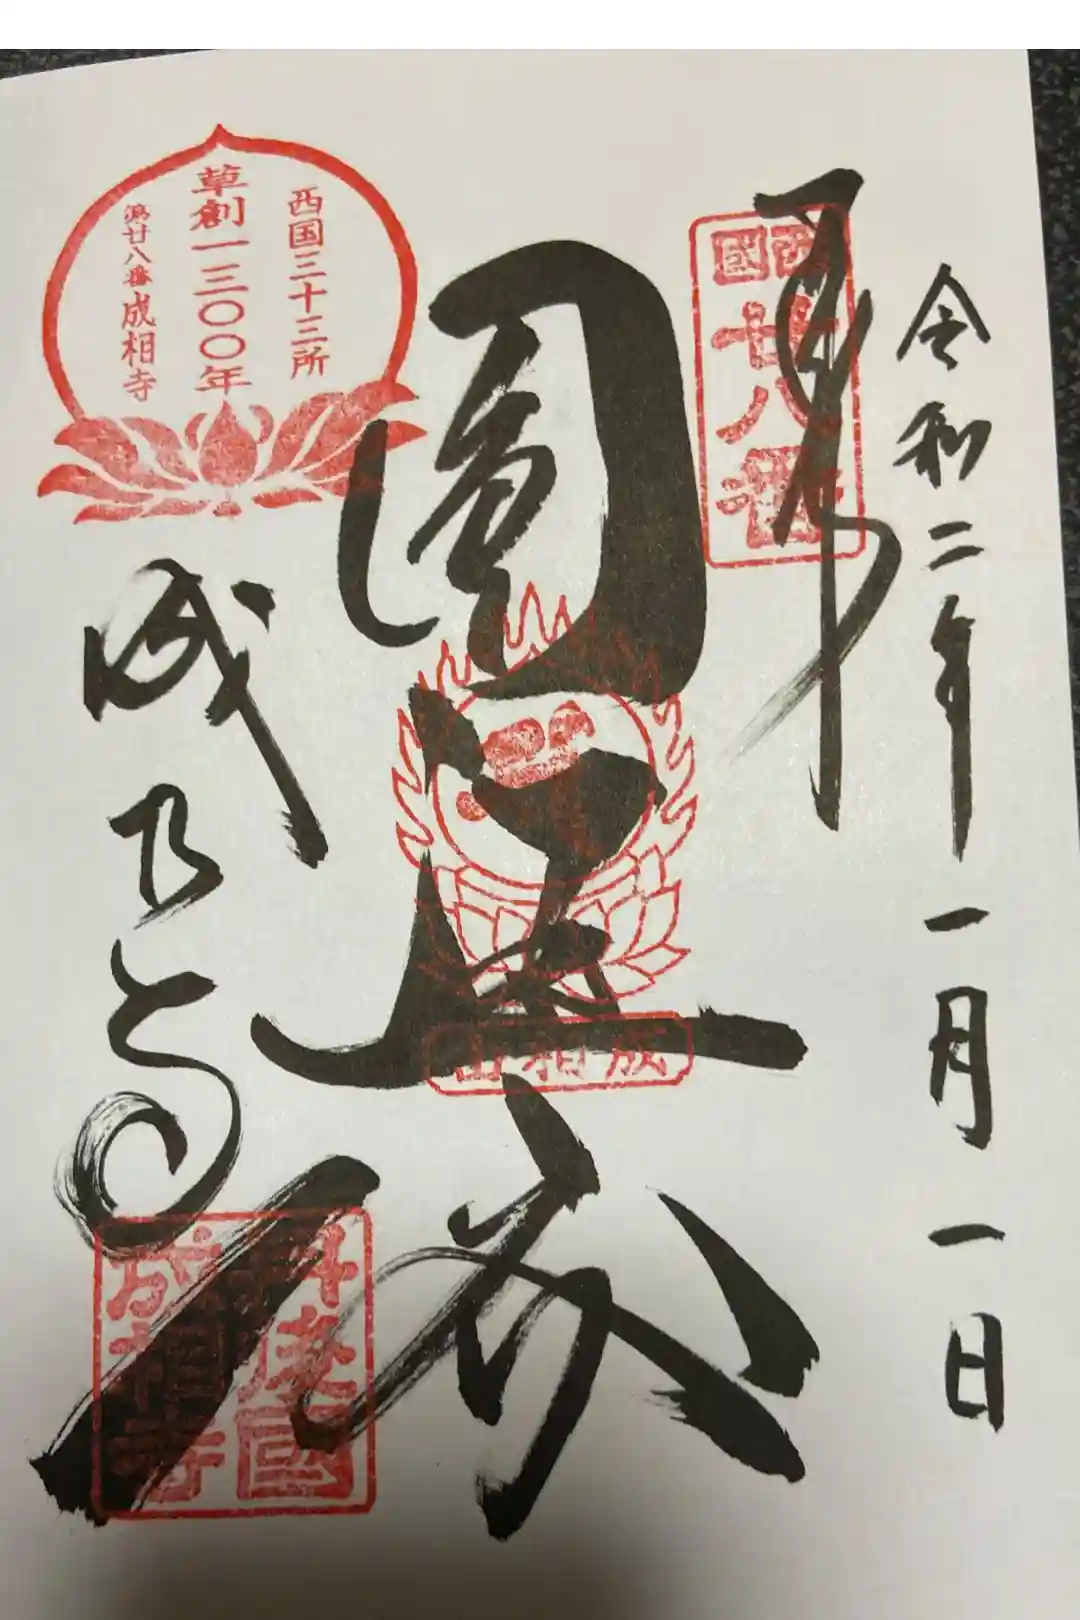 令和二年一月一日
奉拝
西國
廿八番
圓
成相山
西国三十三所
草創一三〇〇年
第廿八番 成相寺
丹後國
成相寺